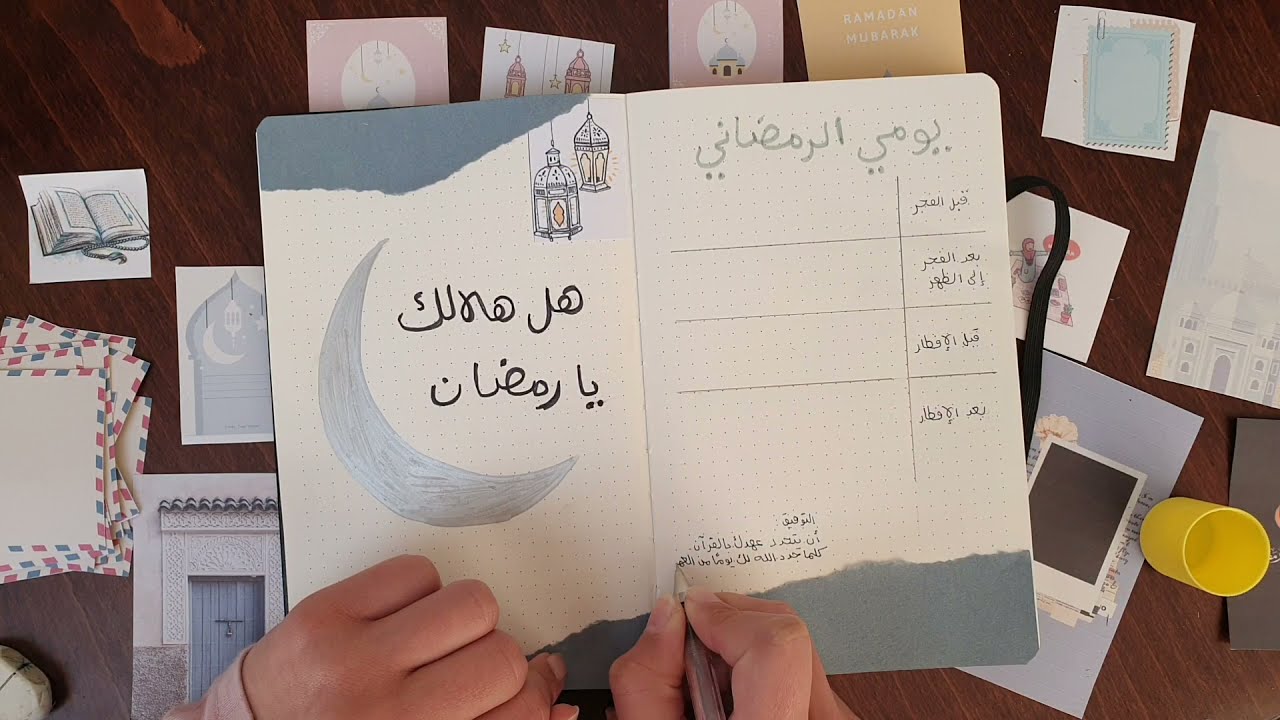 RAMADAN
MUBARAK
يومي الرمضاني
قبل الفجر
بعد الفجر
إلى الظهر
قبل الإفطار
بعد الإفطار
هل هلالك
يا رمضان
التوفيق
أن تجدد عهدك بالقرآن
كلما جدد الله لك يومًا من العمر